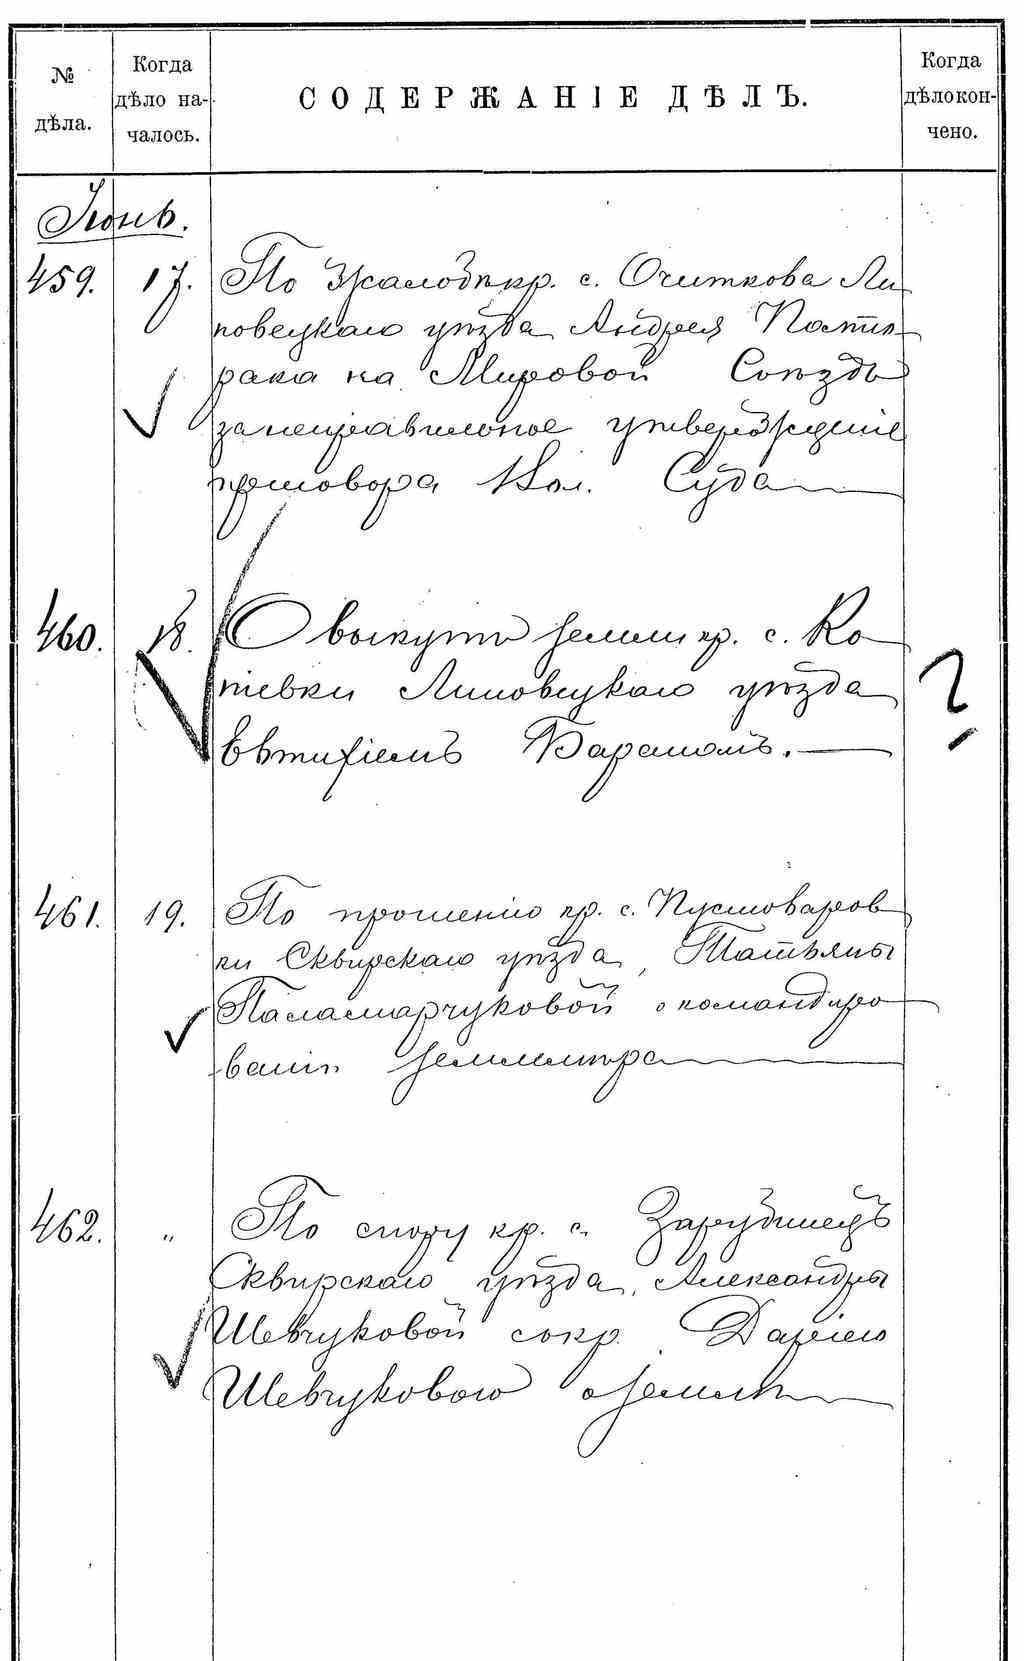 № дѣла.
Когда дѣло на-
чалось.
СОДЕРЖАНІЕ ДѢЛЪ.
Когда
дѣло кон-
чено.
Іюнь.
459. 17. По жалобѣ кр. с. Очиткова Ли
повецкаго уѣзда Андрея
рака на Мировой Съѣздъ
за неправильное утвержденіе
приговора Вол. Суда
460. 18. О выкупѣ земли кр. с. Ко
тевки Липовецкаго уѣзда
Евтихіемъ Бараномъ. ?
461. 19. По прошенію кр. с. Пустоваров
ки Сквирскаго уѣзда, Татьяны
Паламарчуковой о командиро
ваніи землемѣра
462. " По спору кр. с. Зарубинецъ
Сквирскаго уѣзда, Александры
Шевчуковой с кр. Даріею
Шевчуковою о землѣ